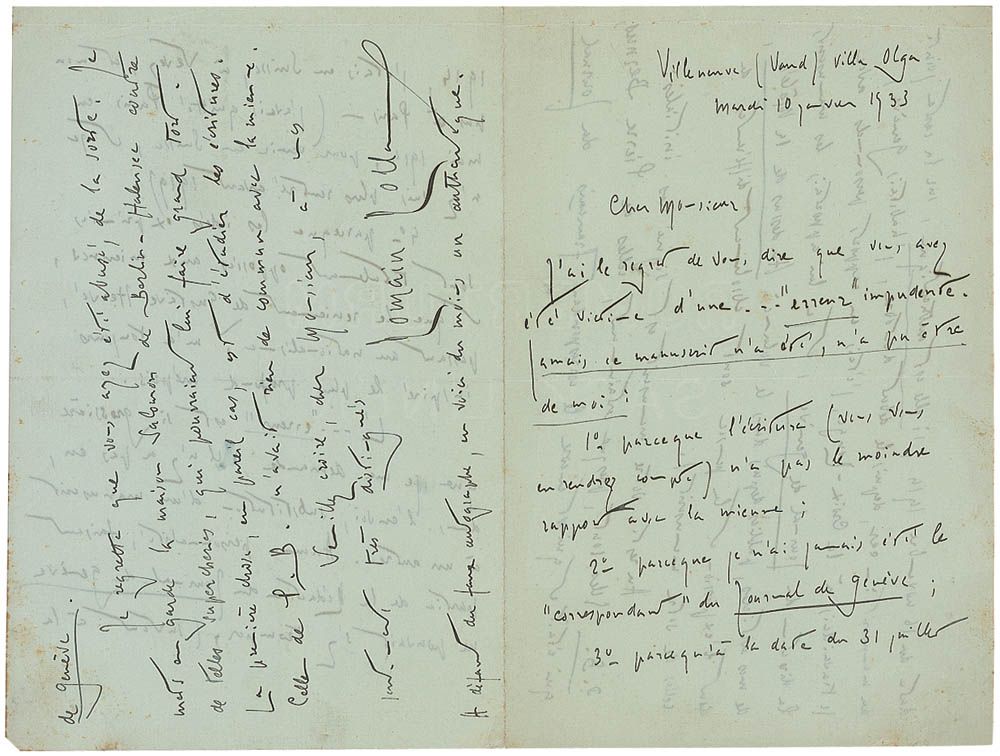 Villeneuve (Vaud) villa Olga
Mardi 10 janvier 1933
Cher Monsieur
J'ai le regret de vous dire que vous avez
été victime d'une ... "erreur" impudente.
Jamais ce manuscrit n'a été, n'a pu être
de moi :
1º parceque l'écriture (vous vous
en rendrez compte) n'a pas le moindre
rapport avec la mienne ;
2º parceque je n'ai jamais été le
"correspondant" du Journal de Genève ;
3º parcequ'à la date du 31 juillet
de Genève.
Je regrette que vous ayez été abusé de la sorte. Je
mets en garde la maison Salomon de Berlin-Halensee contre
de telles supercheries, qui pourraient lui faire grand tort.
La première chose, en pareil cas, est d'étudier les écritures.
Celle de n'avait rien de commun avec la mienne.
Veuillez croire, cher Monsieur, à mes
sentiments très distingués
Romain Rolland
A défaut du faux autographe, en voici du moins un authentique.